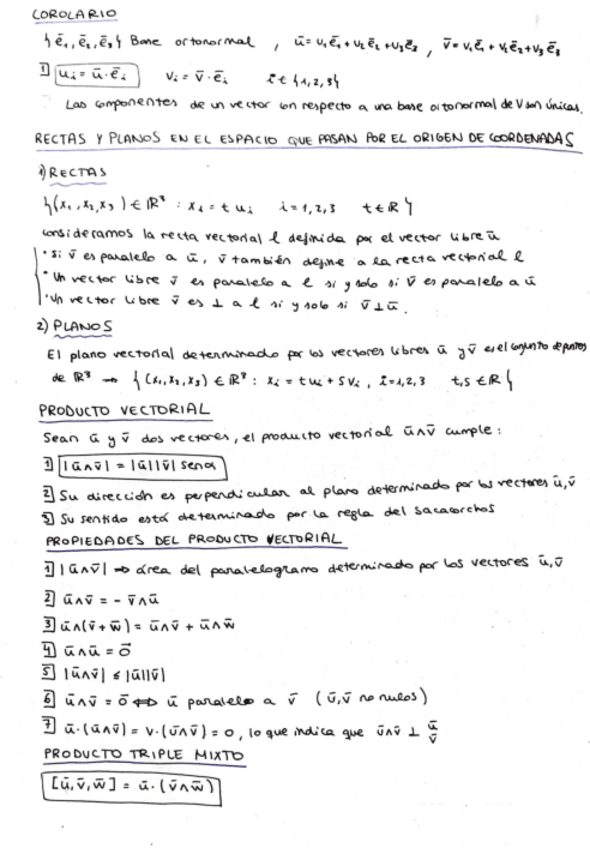 COROLARIO
{ē₁, ē₂, ē₃} Base ortonormal , ū = u₁ē₁ + u₂ē₂ + u₃ē₃ , v̄ = v₁ē₁ + v₂ē₂ + v₃ē₃
1] uᵢ = ū · ēᵢ vᵢ = v̄ · ēᵢ i ∈ {1,2,3}
Las componentes de un vector con respecto a una base ortonormal de V son únicas.
RECTAS Y PLANOS EN EL ESPACIO QUE PASAN POR EL ORIGEN DE COORDENADAS
1) RECTAS
{(x₁, x₂, x₃) ∈ ℝ³ : xᵢ = t uᵢ i = 1,2,3 t ∈ ℝ}
consideramos la recta vectorial l definida por el vector libre ū
· si v̄ es paralelo a ū, v̄ también define a la recta vectorial l
· Un vector libre v̄ es paralelo a l si y solo si v̄ es paralelo a ū
· Un vector libre v̄ es ⊥ a l si y solo si v̄ ⊥ ū.
2) PLANOS
El plano vectorial determinado por los vectores libres ū y v̄ es el conjunto de puntos
de ℝ³ → {(x₁, x₂, x₃) ∈ ℝ³ : xᵢ = t uᵢ + s vᵢ, i = 1,2,3 t,s ∈ ℝ}
PRODUCTO VECTORIAL
Sean ū y v̄ dos vectores, el producto vectorial ū∧v̄ cumple :
1] |ū∧v̄| = |ū||v̄| sen α
2] Su dirección es perpendicular al plano determinado por los vectores ū, v̄
3] Su sentido está determinado por la regla del sacacorchos
PROPIEDADES DEL PRODUCTO VECTORIAL
1] |ū∧v̄| ⇒ área del paralelogramo determinado por los vectores ū, v̄
2] ū∧v̄ = - v̄∧ū
3] ū∧(v̄ + w̄) = ū∧v̄ + ū∧w̄
4] ū∧ū = 0⃗
5] |ū∧v̄| ≤ |ū||v̄|
6] ū∧v̄ = 0̄ ⇔ ū paralelo a v̄ (ū, v̄ no nulos)
7] ū · (ū∧v̄) = v · (ū∧v̄) = 0, lo que indica que ū∧v̄ ⊥ ū
v̄
PRODUCTO TRIPLE MIXTO
[ū, v̄, w̄] = ū · (v̄∧w̄)